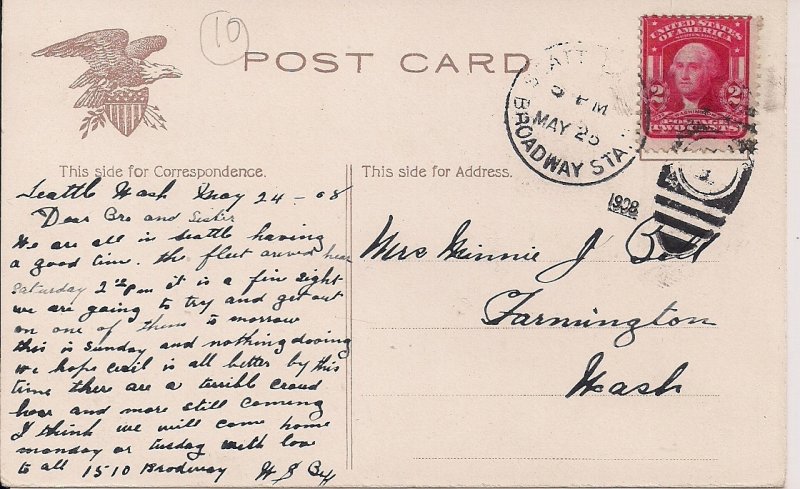 10
POST CARD
SEATTLE
5 PM
MAY 25
BROADWAY STA.
1908
UNITED STATES
OF AMERICA
2 2
POSTAGE
TWO CENTS
This side for Correspondence.
Seattle Wash May 24 - 08
Dear Bro and Sister
We are all in Seattle having
a good time. the fleet arived hear
Saturday 2 pm it is a fine sight
we are going to try and get out
on one of them to morrow
this is Sunday and nothing dooing
we hope is all better by this
time there are a terrible croud
hear and more still coming
I think we will come home
monday or tusday with love
to all 1510 Brodway W S
This side for Address.
Mrs Minnie J
Farmington
Wash